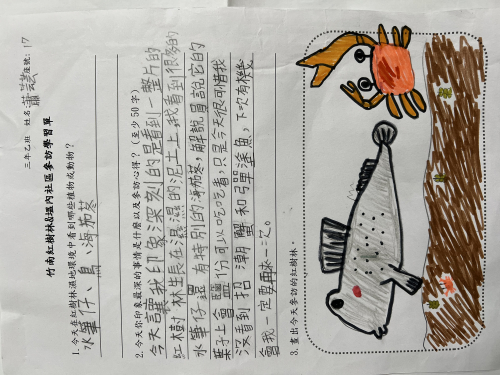 竹南紅樹林&塭內社區參訪學習單
三年乙班 姓名 蕭 座號:17
1. 今天在紅樹林濕地環境中看到哪些植物或動物?
水筆仔、鳥、海茄苳
2. 今天你印象最深的事情是什麼以及參訪心得?(至少50字)
今天讓我印象深刻的是看到一整片的
紅樹林生長在濕濕的泥土上,我看到很多的
水筆仔還有特別的海茄苳,解說員說它的
葉子上會鹽份可以吃吃看,只是今天很可惜我
沒看到招潮蟹和彈塗魚,下次有機
會我一定要再來一次。
3. 畫出今天參訪的紅樹林。